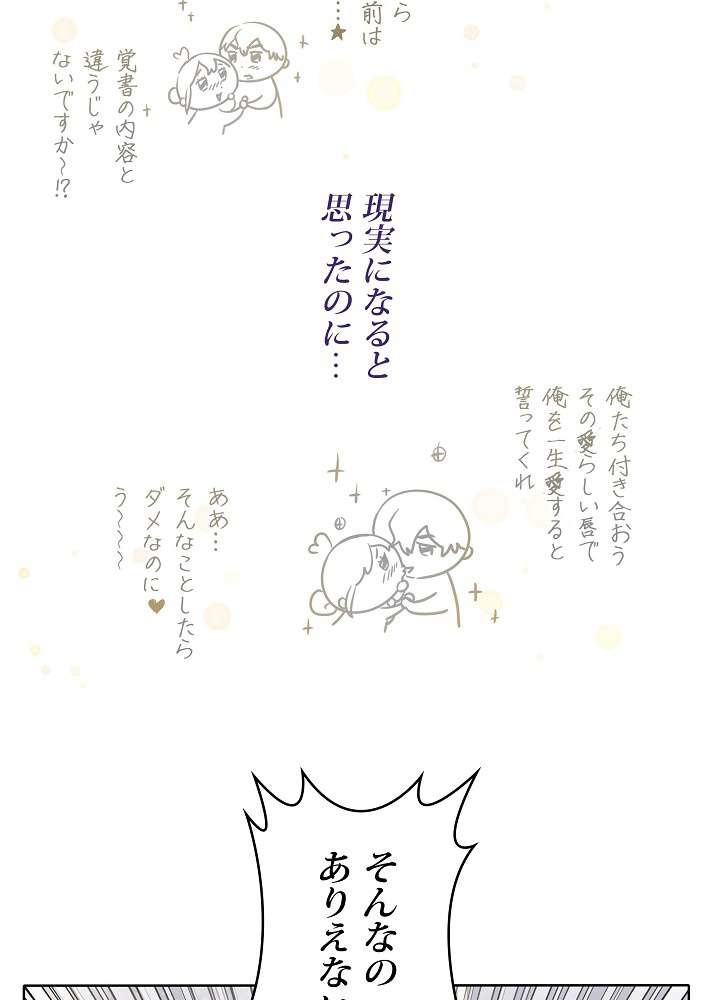 ら
前は
…★
覚書の内容と
違うじゃ
ないですか～!?
現実になると
思ったのに…
俺たち付き合おう
その愛らしい唇で
俺を一生愛すると
誓ってくれ
ああ…
そんなことしたら
ダメなのに♥
う～～～
そんなの
ありえない